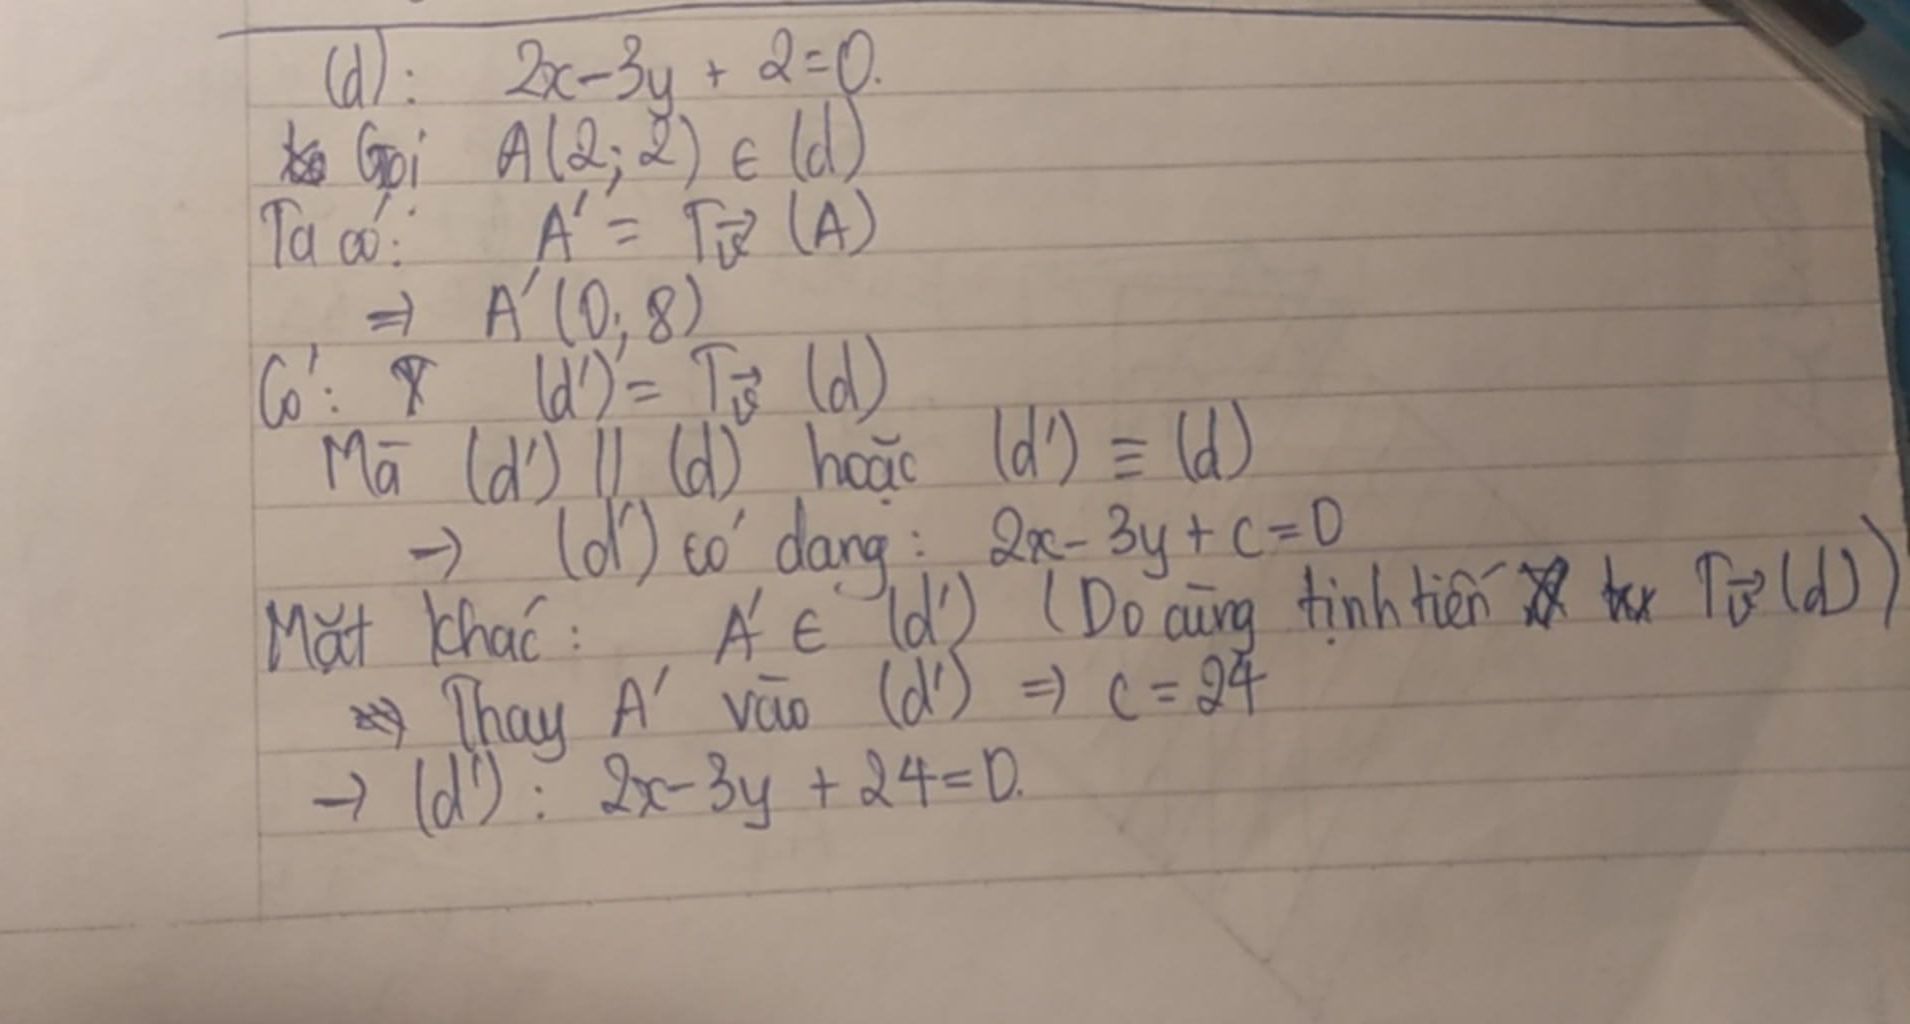 (d): 2x-3y + 2=0.
Gọi A(2; 2) ∈ (d)
Ta có: A' = T_v⃗ (A)
⇒ A'(0; 8)
Có: (d')= T_v⃗ (d)
Mà (d') // (d) hoặc (d') ≡ (d)
→ (d') có dạng: 2x-3y + c=0
Mặt khác: A' ∈ (d') (Do cùng tịnh tiến T_v⃗ (d))
⇒ Thay A' vào (d') ⇒ c = 24
→ (d'): 2x-3y + 24=0.